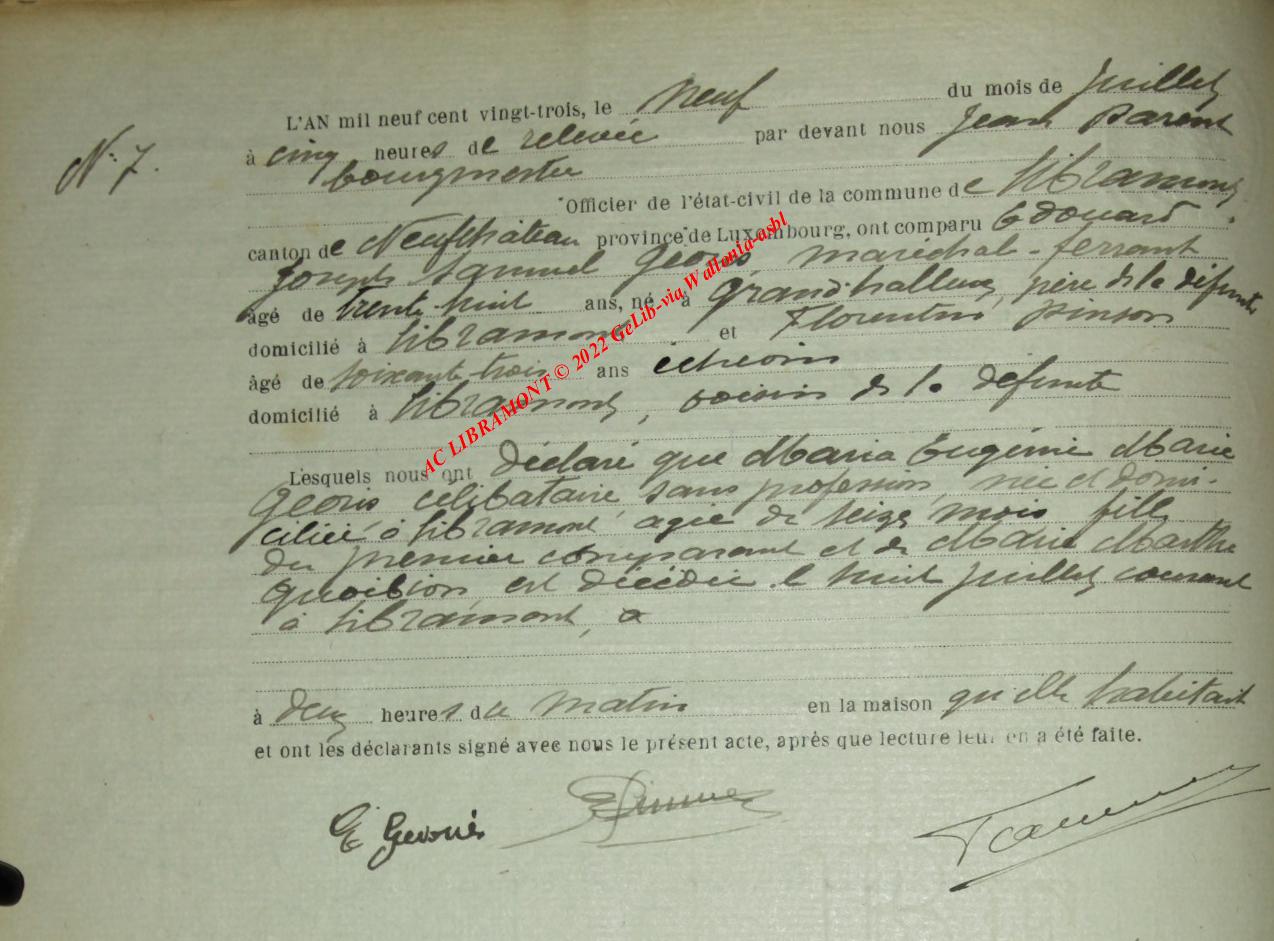 L'AN mil neuf cent vingt-trois, le neuf du mois de juillet
N° 7.
à cinq heures de relevée par devant nous Jean Parent
bourgmestre
Officier de l'état-civil de la commune de Libramont
canton de Neufchâteau province de Luxembourg, ont comparu Edouard
Joseph Samuel Georis, maréchal-ferrant
âgé de trente huit ans, né à Grand-halleux, père de la défunte
domicilié à Libramont et Florentin Pinson
âgé de soixante trois ans échevin
domicilié à Libramont, voisin de la défunte
Lesquels nous ont déclaré que Maria Eugénie Marie
Georis célibataire, sans profession, née et domi-
ciliée à Libramont agée de seize mois fille
du premier comparant et de Marie Marthe
Quoibion, est décédée le huit juillet courant
à Libramont, a
à deux heures du matin en la maison qu'elle habitait
et ont les déclarants signé avec nous le présent acte, après que lecture leur en a été faite.
E Georis
AC LIBRAMONT © 2022 GeLib-via,Wallonia-asbl